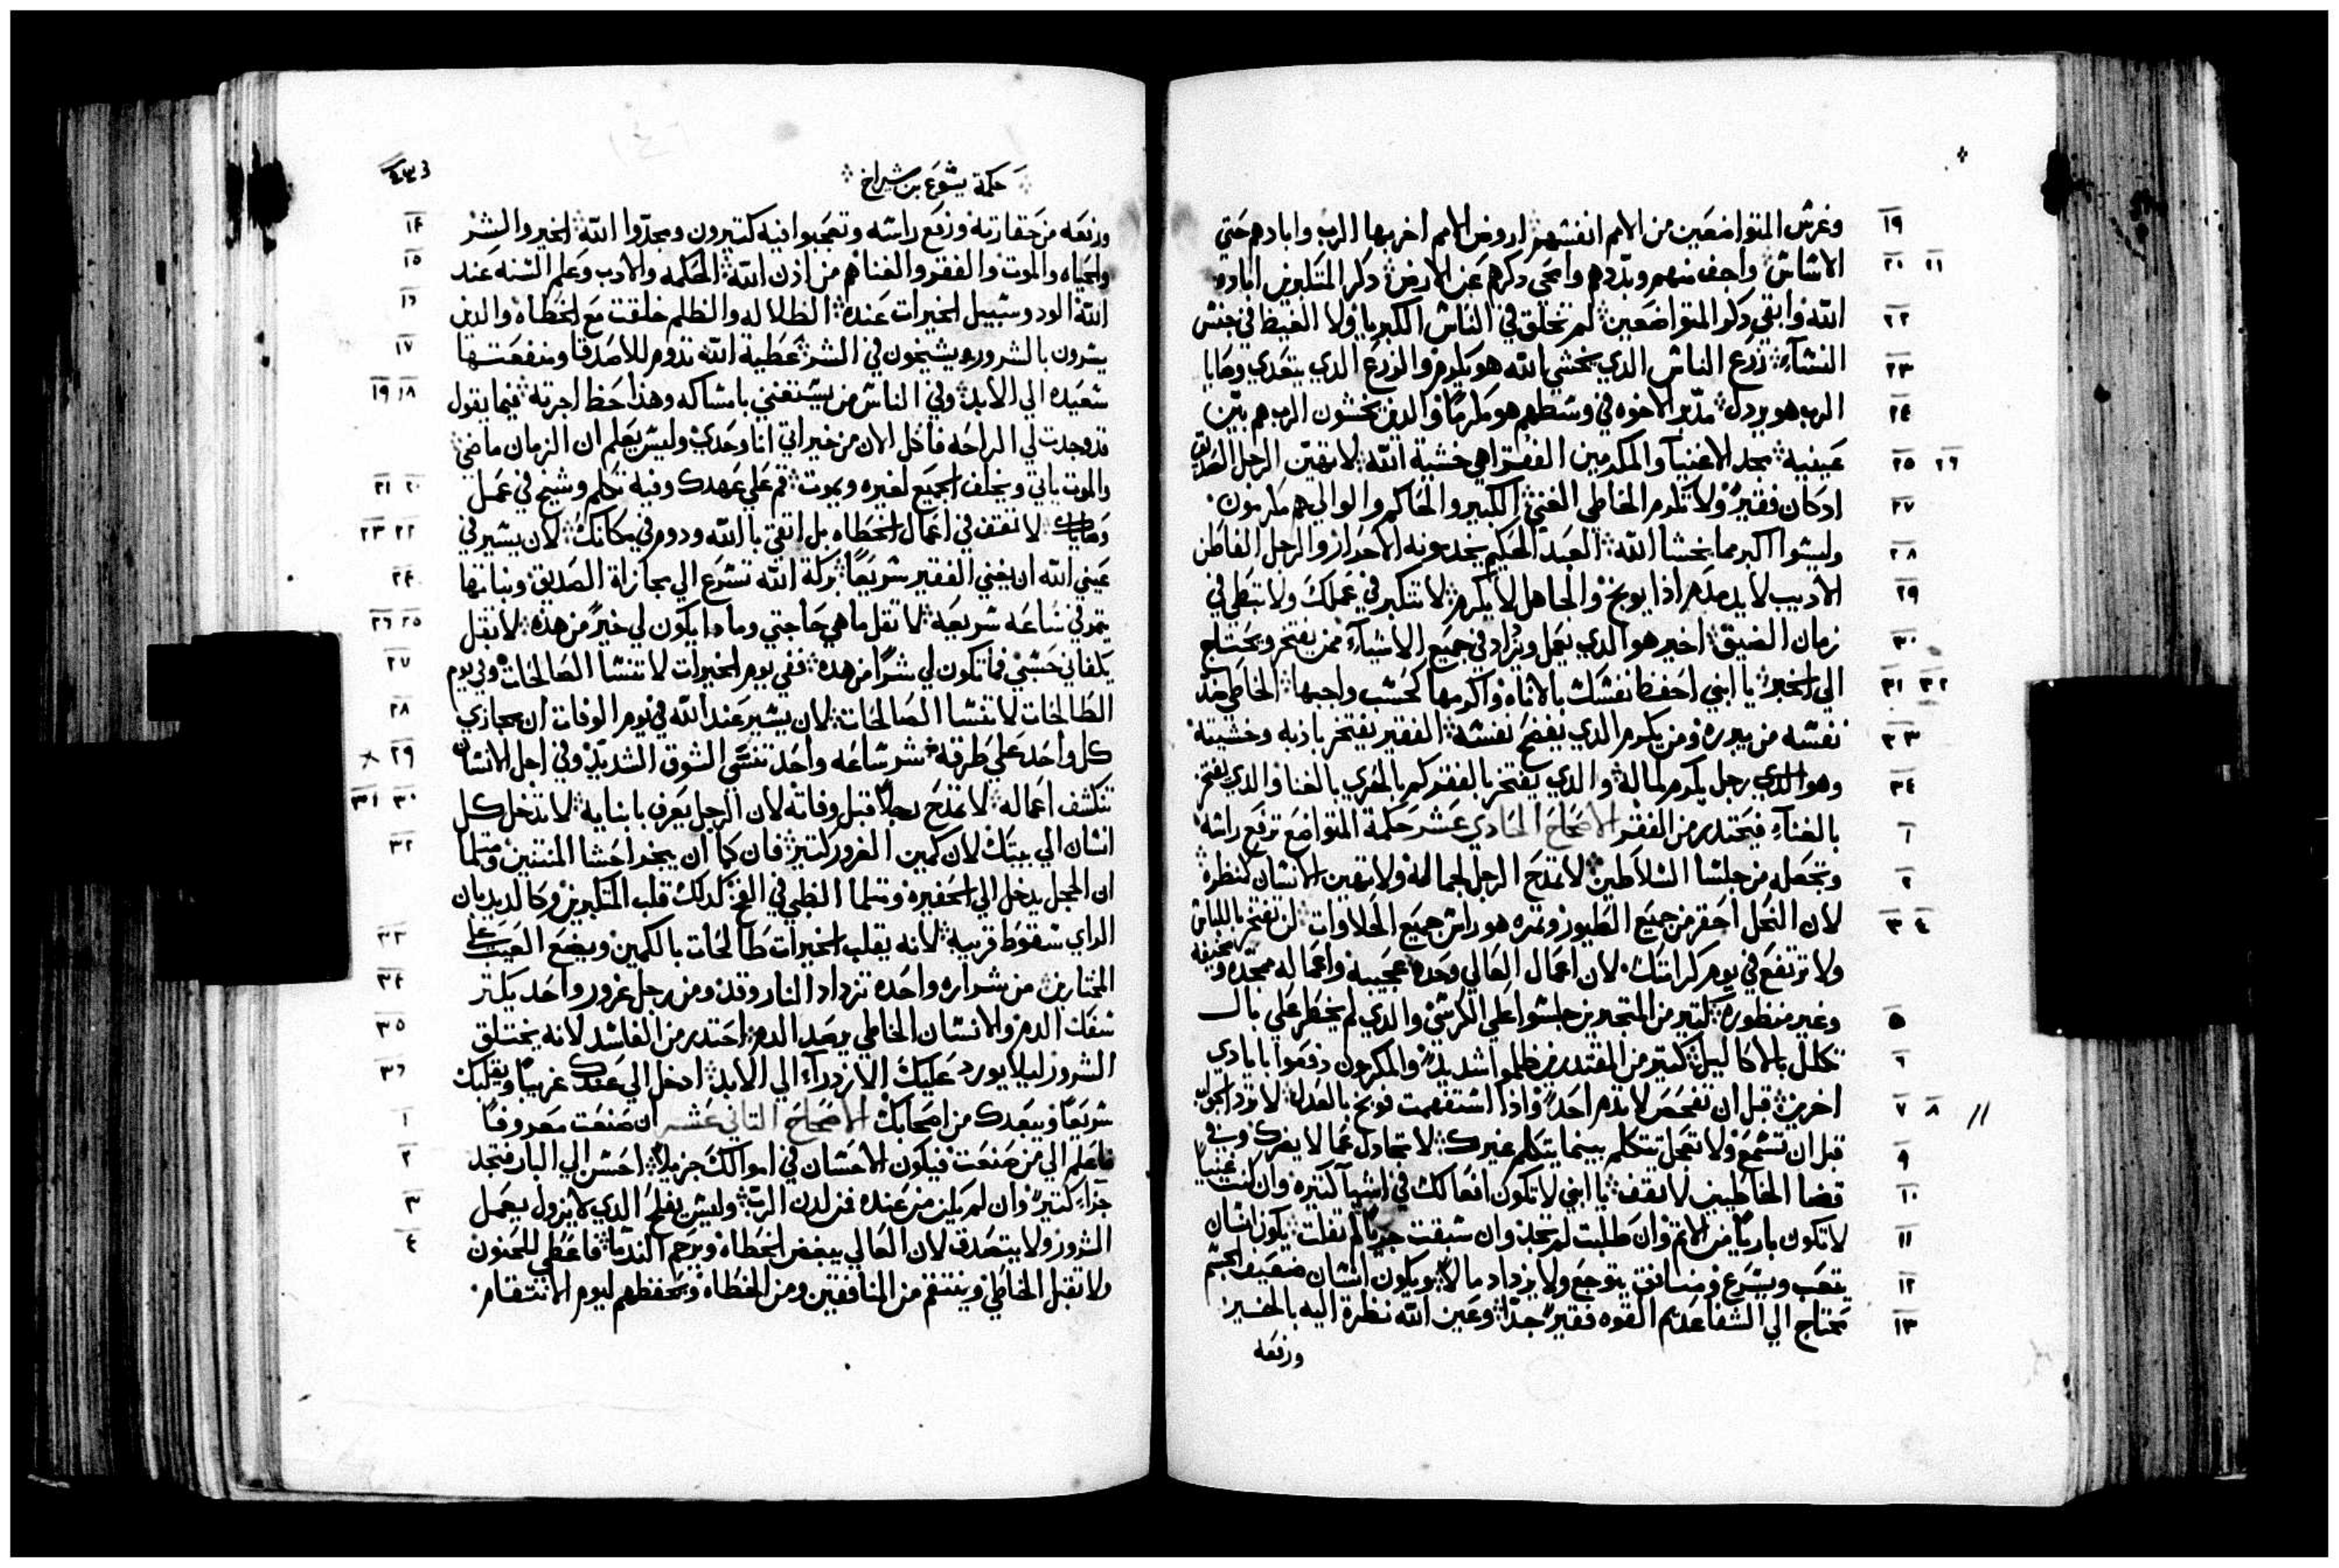 ١٩ وغرس المتواضعين من الامم انفسهم اروض الامم اخربها الرب وابادهم حتي
٢٠ ٢١ الاساس واجف منهم وبددهم وامحي دكرهم عن الارض دكر المتكبرين اباده
٢٢ الله وابقي دكر المتواضعين لم تخلق في الناس الكبريا ولا الغيظ في جنس
٢٣ النسآء زرع الناس الدي يخشي الله هو يكرم والزرع الدي يتعدي وصايا
٢٤ الرب هو يردل مدبر الاخوه في وسطهم هو مكرمًا والدين يخشون الرب هم بين
٢٥ ٢٦ عينيه مجد الاغنيآ والمكرمين الفقرا هي خشية الله لا تهين الرجل الصديق
٢٧ ادكان فقيرً ولا تكرم الخاطي الغني الكبير والحاكم والوالي هم مكرمون
٢٨ وليسوا اكبر مما يخشا الله العبد الحكيم يخدمونه الاحرار والرجل الفاطن
٢٩ الاديب لا يدمدم اذا يوبخ والجاهل لا يكرم لا تتكبر في عملك ولا تبطي في
٣٠ زمان الضيق اخير هو الدي يعمل ويزاد في جميع الاشيآء ممن يفتخر ويحتاج
٣١ ٣٢ الي الخبز يا ابني احفظ نفسك بالاناه واكرمها كحسب واجبها الخاطي ضد
٣٣ نفسه من يبرره ومن يكرم الدي يفضح نفسه الفقير يفتخر بادبه وخشيته
٣٤ وهو الدي رجل يكرم لماله والدي يفتخر بالفقر كم بالحري بالغنا والدي يفتخر
١ بالغنآء فيحتدر من الفقر الاصحاح الحادي عشر حكمة المتواضع ترفع راسه
٢ وتجعله من جلسا السلاطين لا تمدح الرجل لجماله ولا تهين الانسان لنظره
٣ ٤ لان النحل احقر من جميع الطيور وثمره هو راس جميع الحلاوات لن تفتخر باللباس
ولا ترتفع في يوم كرامتك لان اعمال العالي وحده عجيبه واعماله ممجده ومخفيه
٥ وغير منظوره كتير من المتجبرين جلسوا علي الكرسي والدي لم يخطر علي بال
٦ تكلل بالاكاليل كتير من المقتدرين ظلموا شديدً والمكرمون دفعوا بايادي
٧ ٨ اخرين قبل ان تفحص لا تدم احدً واذا استفهمت فوبخ بالعدل لا ترد الجواب
٩ قبل ان تسمع ولا تعجل تتكلم بينما يتكلم غيرك لا تجادل عما لا يضرك وفي
١٠ قضا الخاطيين لا تقف يا ابني لا تكون افعالك في اشيآ كتيره وان كنت غنيًا
١١ لا تكون باريًا من الاتم وان طلبت لم تجد وان سبقت جريًا لم تفلت يكون انسان
١٢ يتعب ويسرع ومنسانق يتوجع ولا يزداد مالاً ويكون انسان ضعيف الجسم
١٣ محتاج الي الشفا عديم القوه فقيرً جدًا وعين الله نظرة اليه بالخير
ورفعه
حكمة يشوع بن سيراخ
١٤ ورفعه من حقارته ورفع راسه وتعجبوا فيه كتيرون ومجدوا الله الخير والشر
١٥ والحياه والموت والفقر والغنا هم من ادن الله الحكمه والادب وعلم السنه عند
١٦ الله الود وسبيل الخيرات عنده الظلاله والظلم خلقت مع الخطاه والدين
١٧ يسرون بالشرور يشيخون في الشر عطية الله تدوم للاصدقا ومنفعتها
١٨ ١٩ سعيده الي الابد وفي الناس من يستغني بامساكه وهذا حظ اجرته فيما يقول
قد وجدت لي الراحه فآكل الان من خيراتي انا وحدي وليس يعلم ان الزمان ماضي
٢٠ ٢١ والموت ياتي ويخلف الجميع لغيره ويموت قم علي عهدك وفيه تكلم وشيخ في عمل
٢٢ ٢٣ وصاياك لا تقف في اعمال الخطاه بل اتقي بالله ودوم في مكانك لان يسير في
٢٤ عيني الله ان يغني الفقير سريعًا بركة الله تسرع الي مجازاة الصديق ونباتها
٢٥ ٢٦ يتمر في ساعه سريعه لا تقل ما هي حاجتي وماذا يكون لي خيرً من هذه لا تقل
٢٧ يكفاني حسبي فما تكون لي شرًا من هده ففي يوم الخيرات لا تنسا الطالحات وفي يوم
٢٨ الطالحات لا تنسا الصالحات لان يسير عند الله في يوم الوفات ان يجازي
٢٩ كل واحد علي طرقه شر ساعه واحد تنسي الشوق الشديد وفي اجل الانسان
٣٠ ٣١ تنكشف اعماله لا تمدح رجلاً قبل وفاته لان الرجل يعرف بابنايه لا تدخل كل
٣٢ انسان الي بيتك لان كمين الغرور كتير فان كما ان يخر احشا المنتنين ومتلما
ان الحجل يدخل الي الحفيره ومتلما الظبي في الفخ كدلك قلب المتكبرين وكالديدبان
٣٣ الراي سقوط قريبه لانه يقلب الخيرات طالحات بالكمين ويضع العيب علي
٣٤ المختارين من شراره واحده تزداد النار وقد ومن رجل غرور واحد يكتر
٣٥ سفك الدم والانسان الخاطي يرصد الدم احتدر من الفاسد لانه يختلق
٣٦ الشرور ليلا يورد عليك الازدرآء الي الابد ادخل الي عندك غريبًا ويقلبك
١ سريعًا ويبعدك من اصحابك الاصحاح التاني عشر ان صنعت معروفًا
٢ فاعلم الي من صنعت فيكون الاحسان في اموالك جزيلاً احسن الي البار فتجد
٣ جزآء كتيرً وان لم يكن من عنده فمن لدن الرب وليس يفلح الدي لا يزول يعمل
٤ الشرور ولا يتصدق لان العالي يبغض الخطاه ويرحم الندما فاعطي للحنون
ولا تقبل الخاطي وينتقم من المنافقين ومن الخطاه ويحفظهم ليوم الانتقام